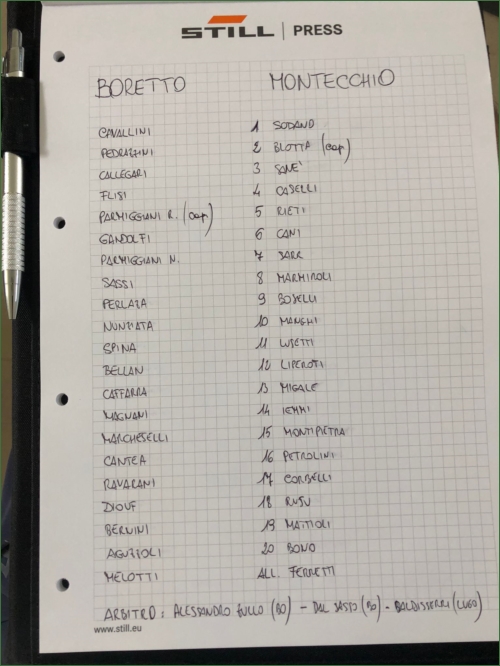 STILL | PRESS
BORETTO MONTECCHIO
CAVALLINI 1 SODANO
PEDRAZZINI 2 BLOTTA (cap)
CALLEGARI 3 SANE'
FLISI 4 CASELLI
PARMIGGIANI R. (cap) 5 RIETI
GANDOLFI 6 CANI
PARMIGGIANI N. 7 SARR
SASSI 8 MARMIROLI
PERLAZA 9 BOSELLI
NUNZIATA 10 MANGHI
SPINA 11 LUSETTI
BELLAN 12 LIPEROTI
CAFFARRA 13 MIGALE
MAGNANI 14 IEMMI
MARCHESELLI 15 MONTIPIETRA
CANTEA 16 PETROLINI
RAVACANI 17 CORBELLI
DIOUF 18 RUSU
BERNINI 19 MATTIOLI
AGUZZOLI 20 BONO
MELOTTI ALL. FERRETTI
ARBITRO: ALESSANDRO (BO) - DAL SASSO (BO) - BALDISSERRI (LUGO)
www.still.eu